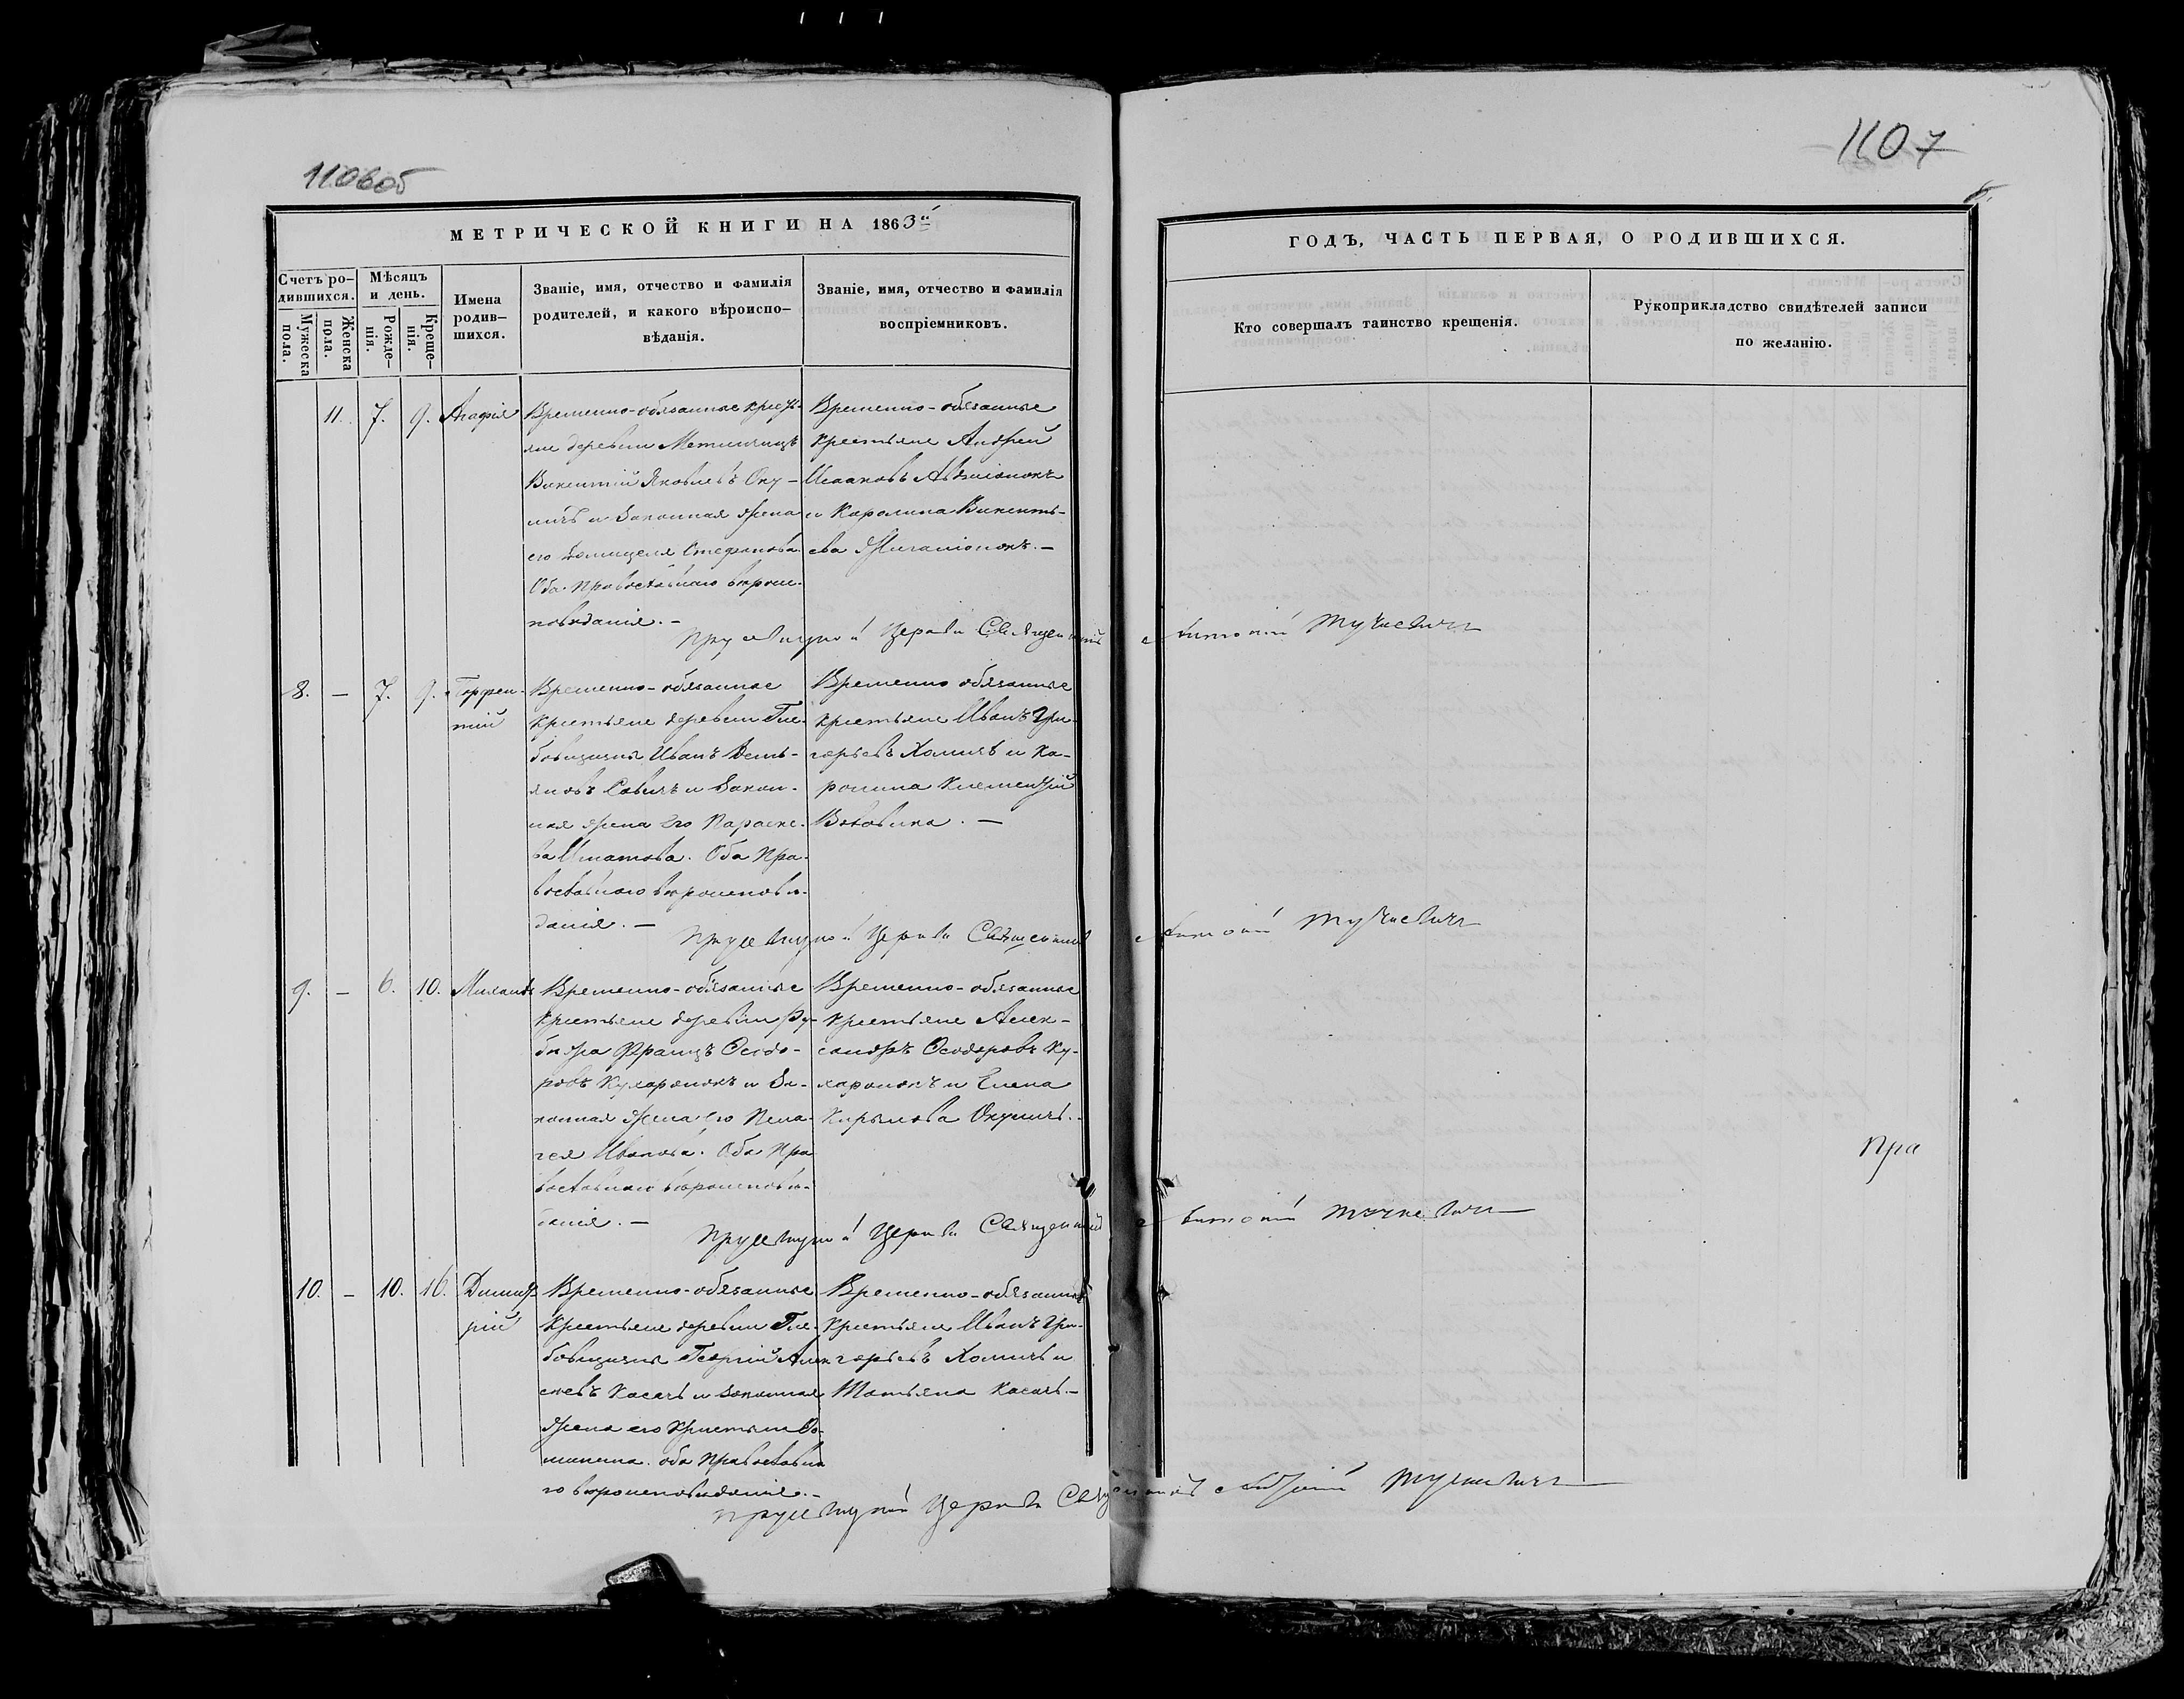 110 об
1107
МЕТРИЧЕСКОЙ КНИГИ НА 1863й
ГОДЪ, ЧАСТЬ ПЕРВАЯ, О РОДИВШИХСЯ.
Счетъ ро-
дившихся.
Мужеска
пола.
Женска
пола.
Мѣсяцъ
и день.
Рожде-
нія.
Креще-
нія.
Имена
родив-
шихся.
Званіе, имя, отчество и фамилія
родителей, и какого вѣроиспо-
вѣданія.
Званіе, имя, отчество и фамилія
воспріемниковъ.
Кто совершалъ таинство крещенія.
Рукоприкладство свидѣтелей записи
по желанію.
11. 7. 9. Агафія
Временно-обязанные кресть-
яне деревни
Викентій Яковлевъ Оку-
личъ и законная жена
его Стефанова.
Оба Православнаго вѣроис-
повѣданія. —
Временно-обязанные
крестьяне Андрей
Исааковъ
и Каролина Викенть-
ева
Церкви Священникъ Антоній Тучкевичъ
8. — 7. 9.
тій
Временно-обязанные
крестьяне деревни Гле-
бовщизны Иванъ Демь-
яновъ Савичъ и закон-
ная жена его Параске-
ва Игнатова. Оба Пра-
вославнаго вѣроисповѣ-
данія. —
Временно обязанные
крестьяне Иванъ Гри-
горьевъ Хомичъ и Ка-
ролина
Церкви Священникъ Антоній Тучкевичъ
9. — 6. 10. Михаилъ
Временно-обязанные
крестьяне деревни Ру-
бежа Францъ Ѳеодо-
ровъ Кухаронокъ и за-
конная жена его Пела-
гея Иванова. Оба Пра
вославнаго вѣроисповѣ-
данія. —
Временно-обязанные
крестьяне Алек-
сандръ Ѳеодоровъ Ку-
харонокъ и Елена
Кирылова Окуличъ. -
Пра
Церкви Священникъ Антоній Тучкевичъ
10. — 10. 16. Димит-
рій
Временно-обязанные
крестьяне деревни Гле-
бовщизны Георгій Алек
сѣевъ Касачъ и законная
жена его
оба Православна
го вѣроисповѣданія. —
Временно-обязанные
крестьяне Иванъ Гри-
горьевъ Хомичъ и
Татьяна Касачъ. —
Церкви Священникъ Антоній Тучкевичъ